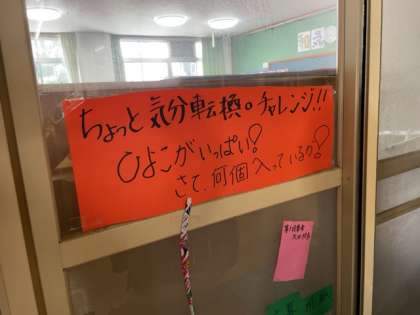 ちょっと気分転換。チャレンジ!!
ひよこがいっぱい?
さて、何個入っているか?